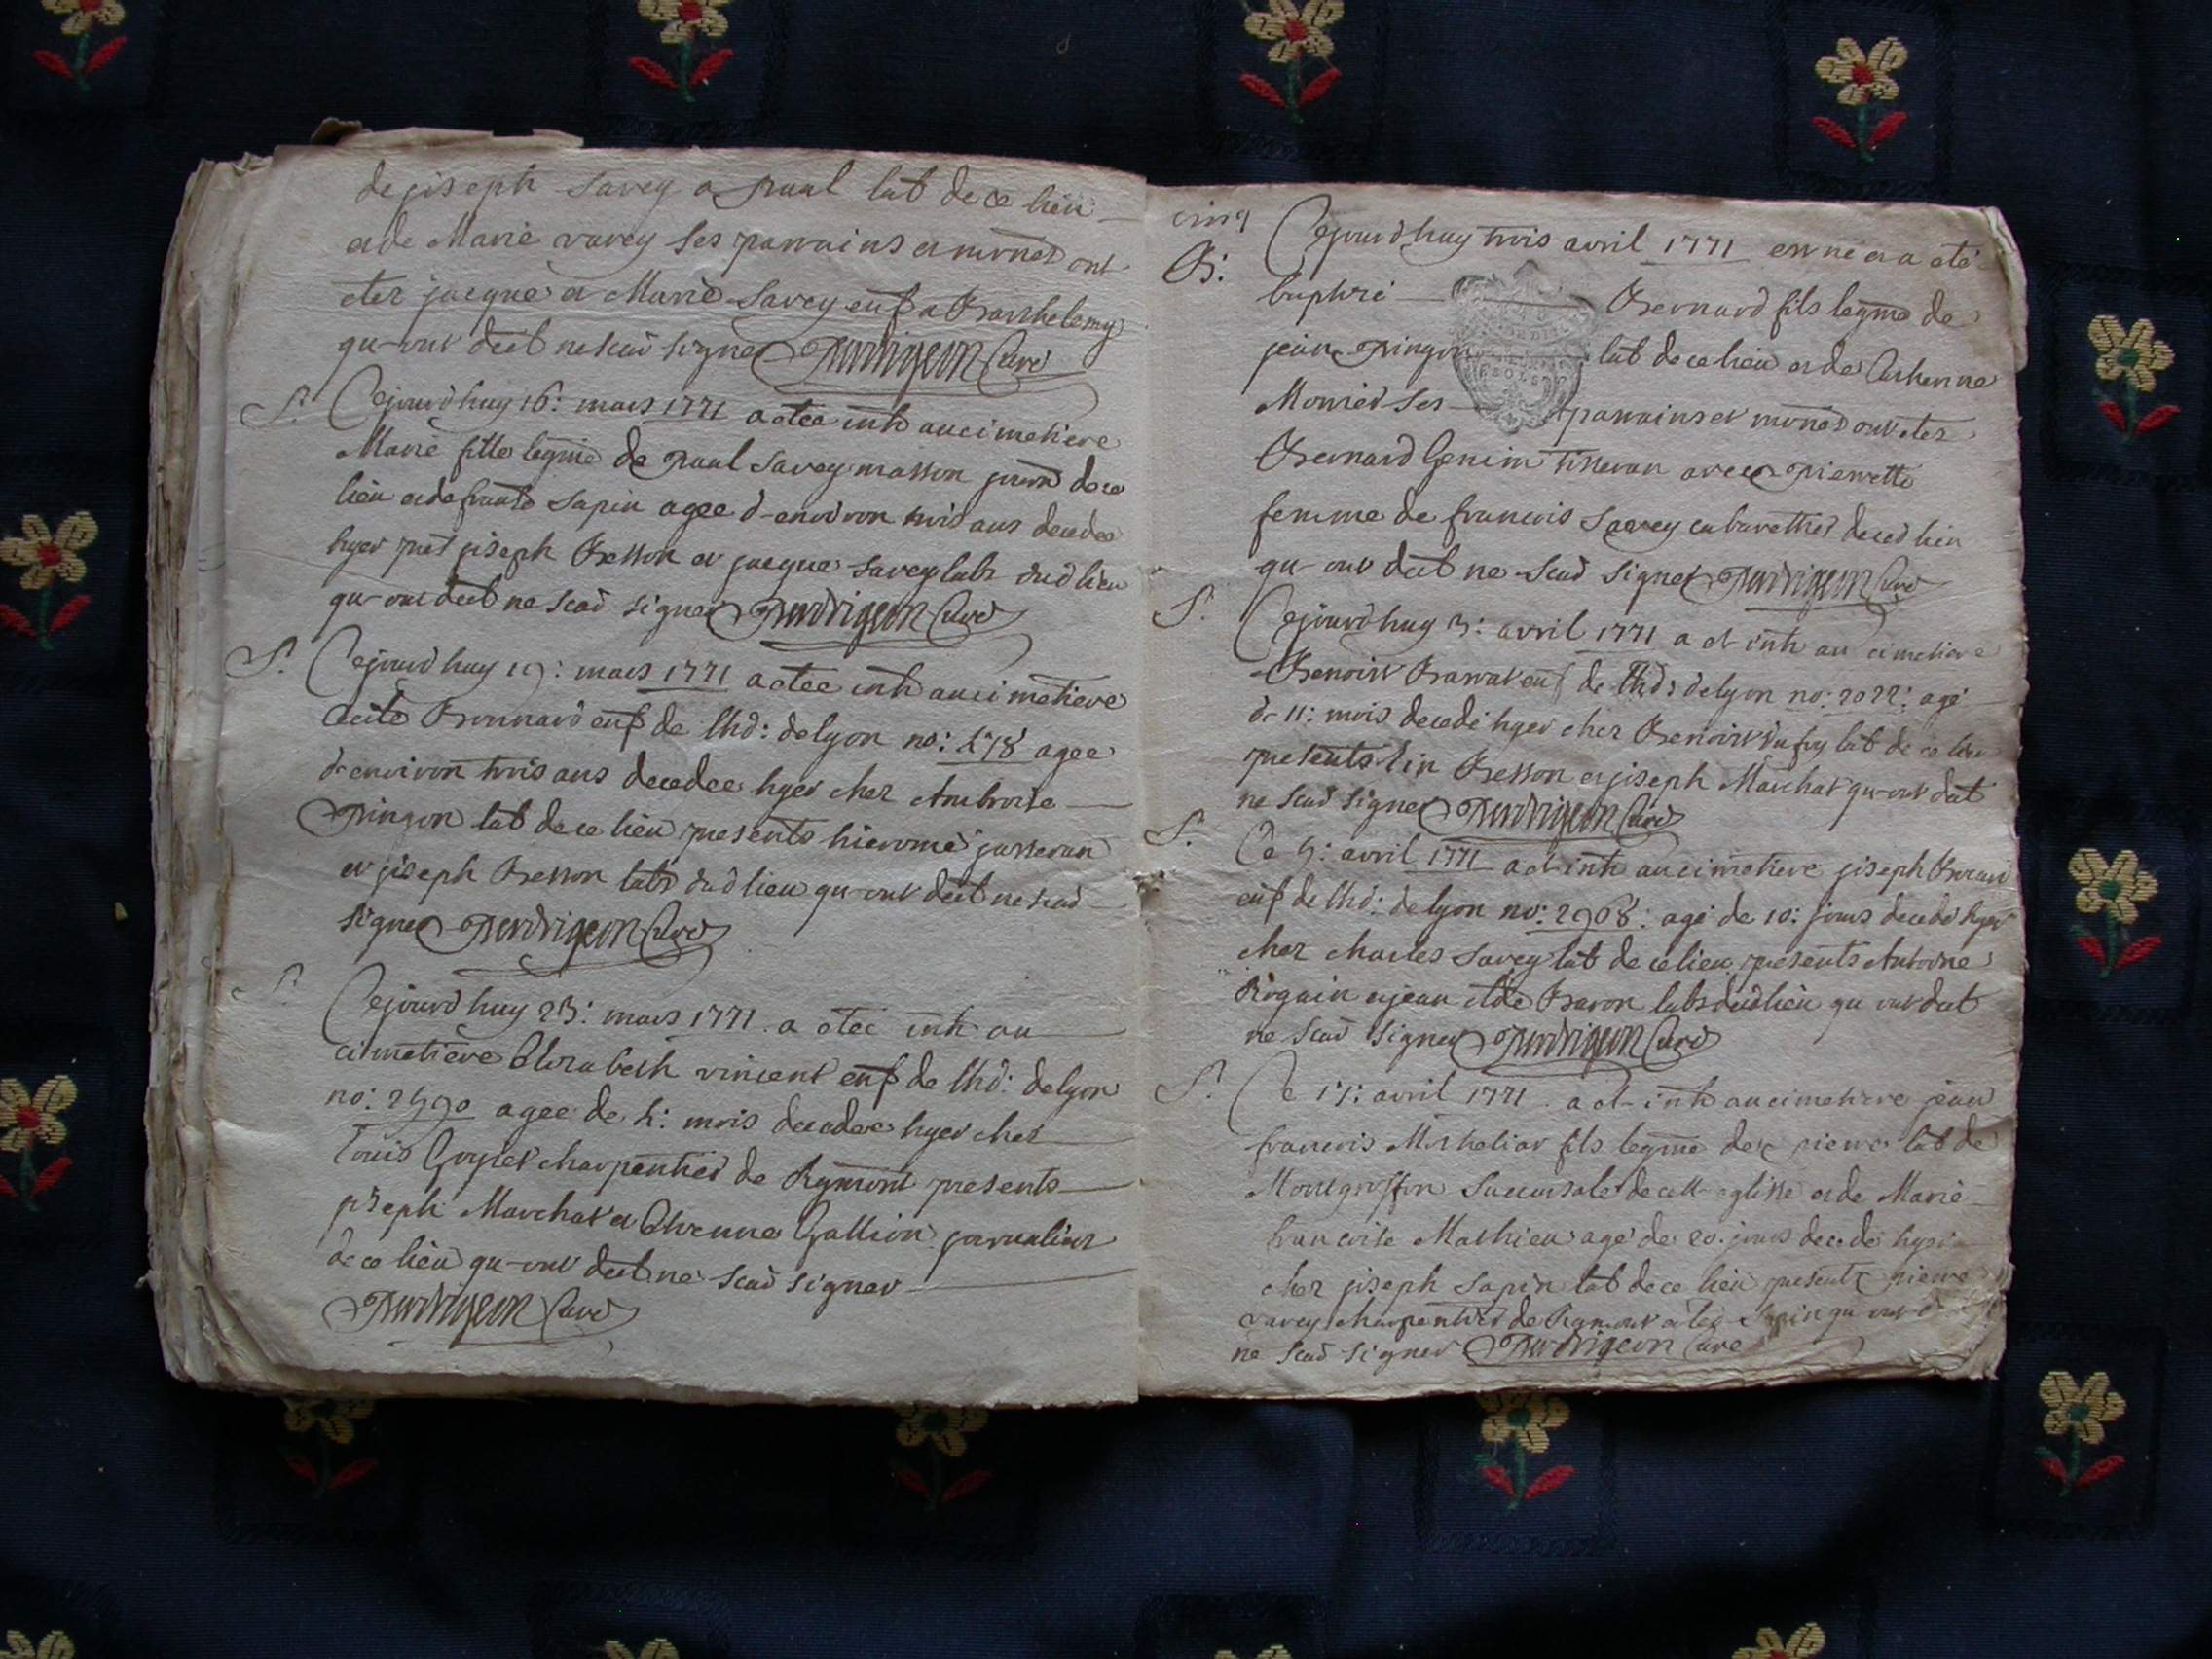 de joseph Savey a paul lab de ce lieu
et de Marie varey ses parrains et mrnes ont
etez jacque et Marie Savey enf a Barthelemy
qu-ont decl ne scav signer Perdrigeon Curé
S. Cejourd huy 16: mars 1771 a etee inh au cimetiere
Marie fille legme de paul Savey masson journ de ce
lieu et de franse Sapin agee d-environ trois ans decedee
hyer pnts joseph Besson et jacque Savey labs dud lieu
qu-ont decl ne scav signer Perdrigeon Curé
S. Cejourd huy 19: mars 1771 a etee inh au cimetiere
Bonnard enf de lhd: de lyon no: 478 agee
d-environ trois ans decedee hyer chez Ambroise
pingon lab de ce lieu presents hierome josseran
et joseph Besson labs dud lieu qu-ont decl ne scav
signer Perdrigeon Curé
S. Cejourd huy 23: mars 1771. a etee inh au
cimetiere Elizabeth vincent enf de lhd: de lyon
no: 2590 agee de 4: mois decedee hyer chez
Louis Goyet charpentier de Rymont presents
joseph Marchat et Etienne Gallion journaliers
de ce lieu qu-ont decl ne scav signer
Perdrigeon Curé
cinq
B. Cejourd huy trois avril 1771 est né et a eté
baptizé Bernard fils legme de
jean pingon lab de ce lieu et de Estienne
Monier ses parrains et mrnes ont etez
Bernard Genin tisseran avec pierrette
femme de francois Savey cabarettier de ced lieu
qu-ont decl ne scav signer Perdrigeon Curé
S. Cejourd huy 3: avril 1771 a et inh au cimetiere
Benoist Barrat enf de lhd: de lyon no: 2022: agé
de 11: mois decedé hyer chez Benoist Dufoy lab de ce lieu
presents Besson et joseph Marchat qu-ont decl
ne scav signer Perdrigeon Curé
S. Ce 5: avril 1771 a et inh au cimetiere joseph
enf de lhd: de lyon no: 2968: agé de 10: jours decedé hyer
chez charles Savey lab de ce lieu presents Antoine
Rogain et jean Baron labs dud lieu qu ont decl
ne scav signer Perdrigeon Curé
S. Ce 17: avril 1771. a et inh au cimetiere jean
francois Micheliar fils legme de pierre lab de
Montgriffon Succursale de cette eglisse et de Marie
francoise Mathieu agé de 20. jours decedé hyer
chez joseph Sapin lab de ce lieu presents pierre
varey charpentier de Rymont et Sapin qu ont
ne scav signer Perdrigeon Curé